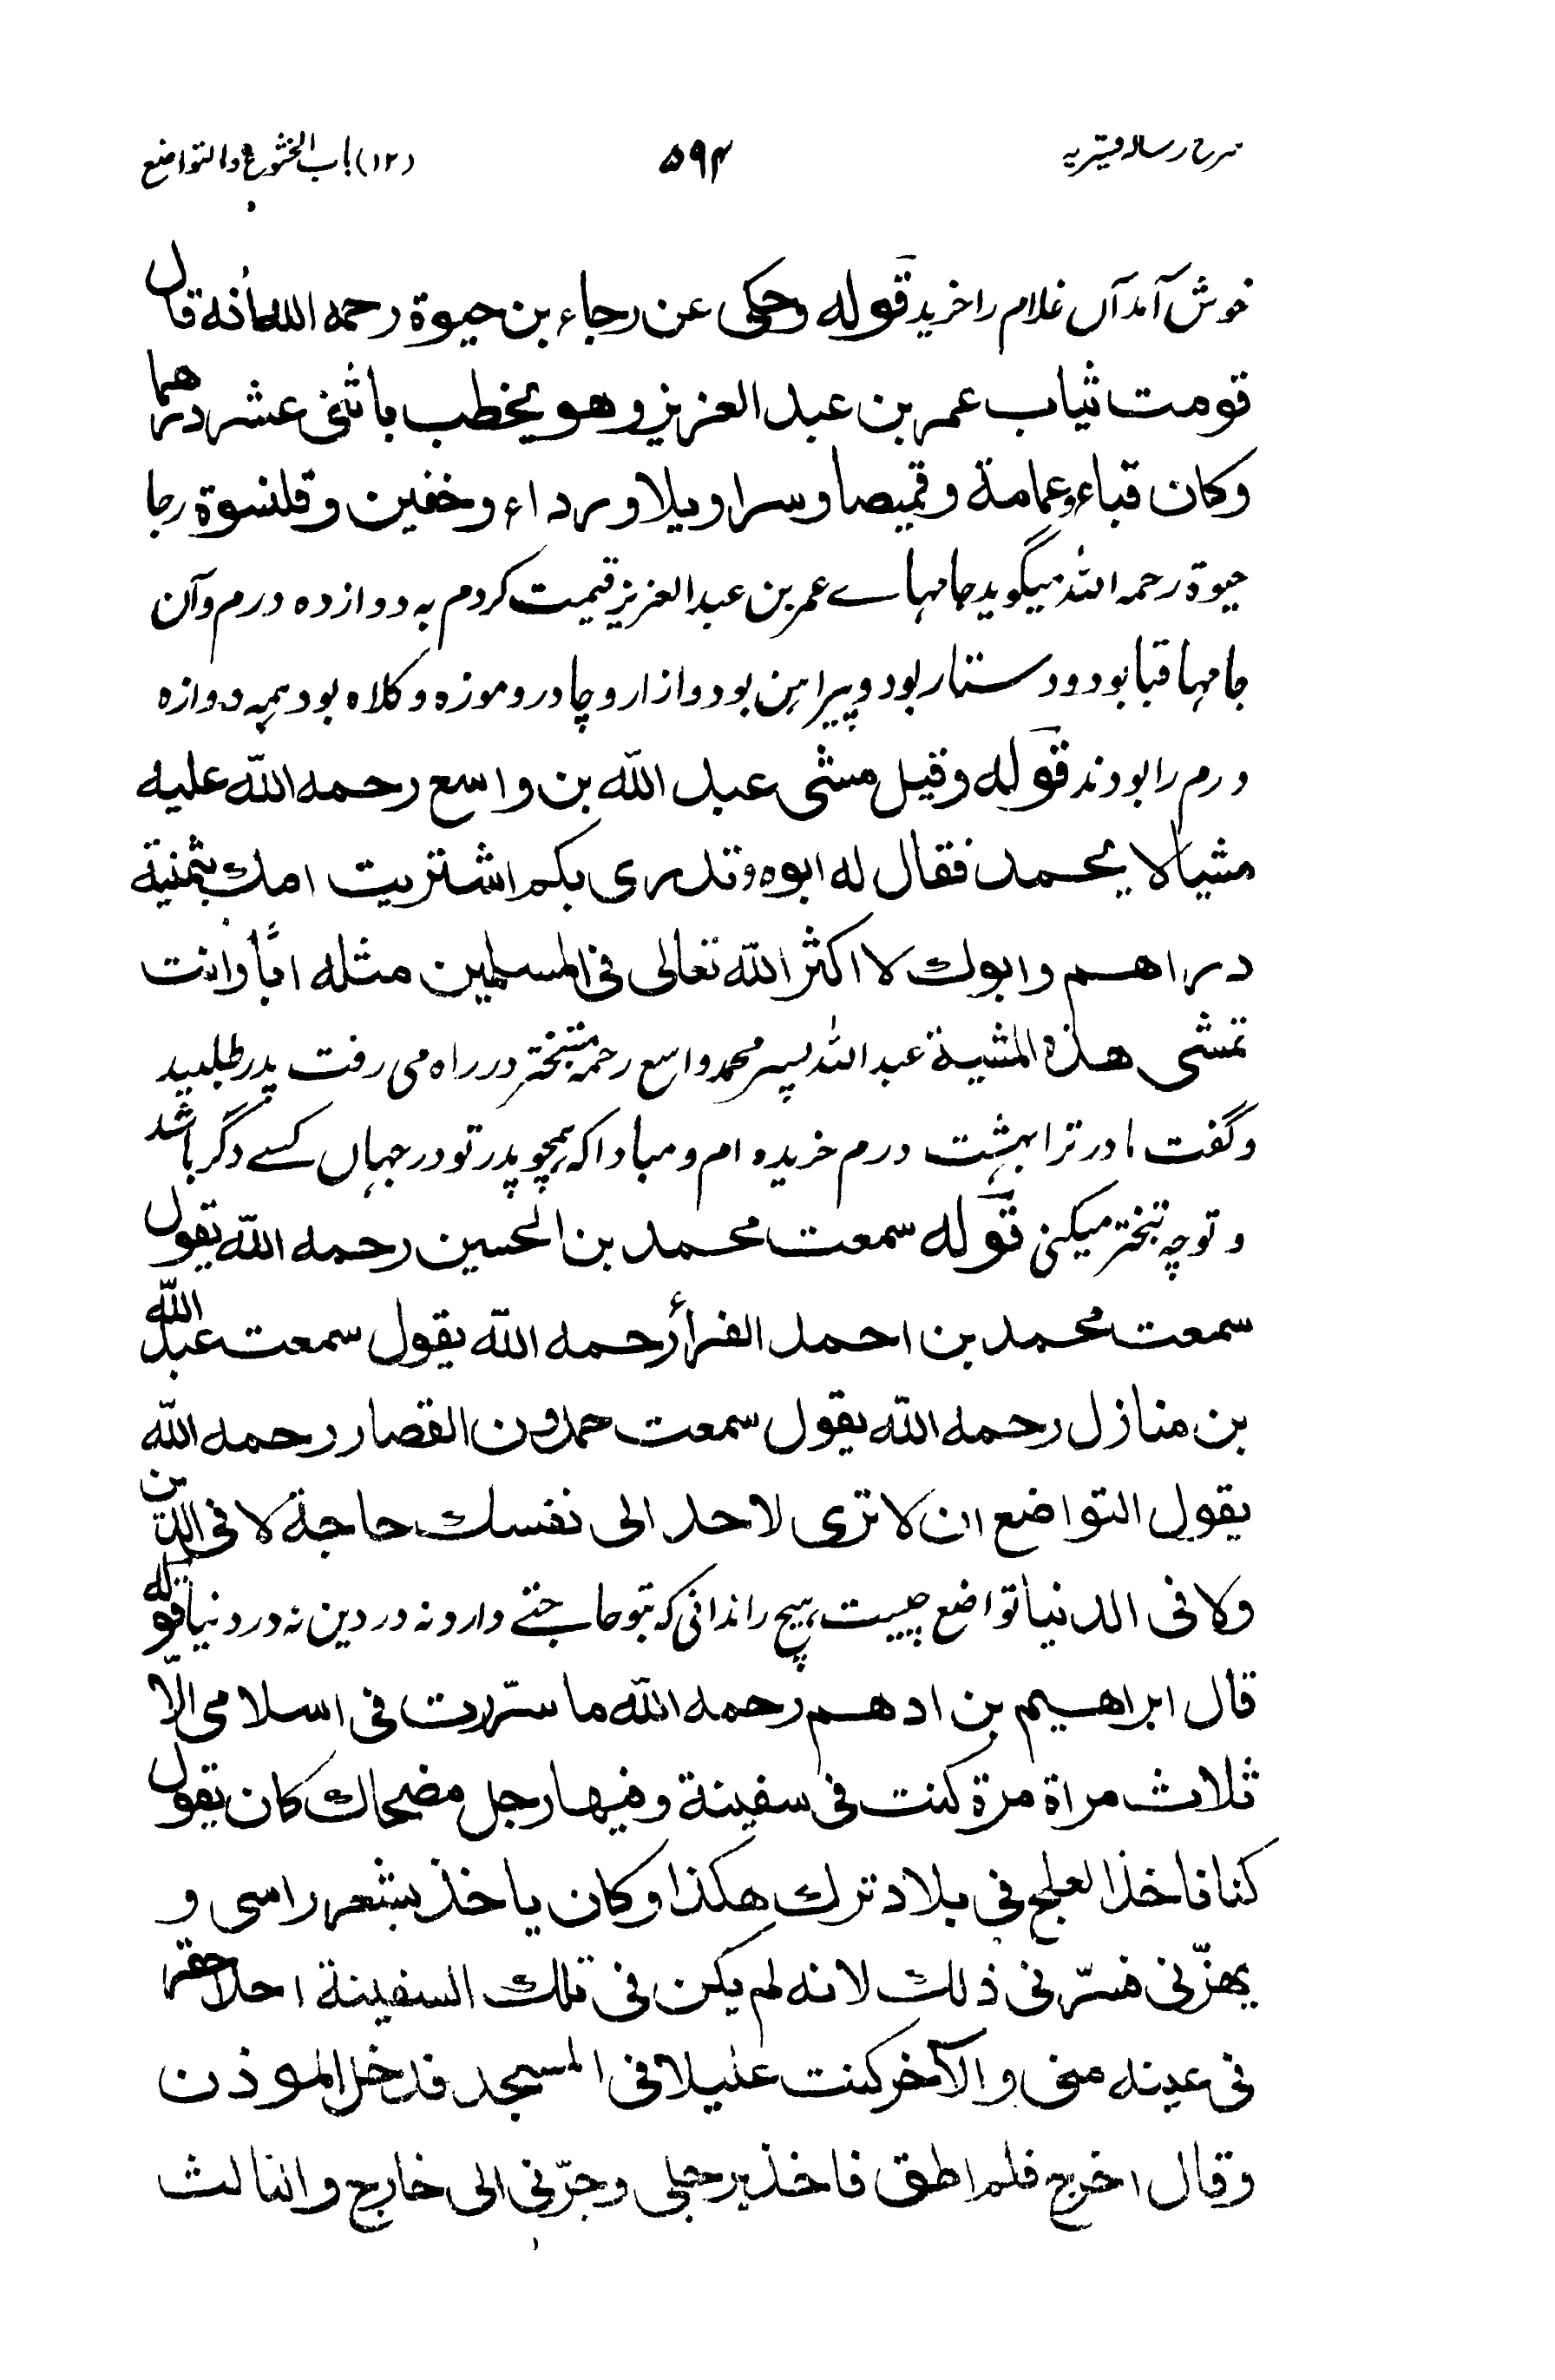 شرح رساله قشیریه ۵۹۴ (۱۲) باب الخشوع والتواضع
خوش آمد آں غلام را خرید قوله وحکی عن رجاء بن حیوة رحمه الله انه قال
قومت ثیاب عمر بن عبد العزیز وهو یخطب باثنی عشر درهما
وکان قباء وعمامة وقمیصا وسراویلا ورداء وخفین وقلنسوة رجا
حیوة رحمه الله میگوید جامهاے عمر بن عبد العزیز قیمت کردم به دوازده درم وآن
جامها قبا بود ودستار بود وپیراهن بود وازار وچادر وموزه وکلاه بود همه دوازه
درم را بودند قوله وقیل مشی عبد الله بن واسع رحمه الله علیه
مشیا لا یحمد فقال له ابوه وتدری بکم اشتریت امك بثمنیة
دراهم وابوك لا اکثر الله تعالی فی المسلمین مثله ابًا وانت
تمشی هذه المشیة عبد الله پسر محمد واسع رحمه متبختر در راه می رفت پدر طلبید
وگفت مادر ترا بهشت درم خریده ام ومبادا که همچو پدر تو در جهاں کسے دگر باشد
و تو چه تبختر میکنی قوله سمعت محمد بن الحسین رحمه الله یقول
سمعت محمد بن احمد الفراء رحمه الله یقول سمعت عبد الله
بن منازل رحمه الله یقول سمعت حمدون القصار رحمه الله
یقول التواضع ان لا تری لاحد الی نفسك حاجة لا فی الدین
ولا فی الدنیا تواضع چیست هیچ را ندانی که بتو حاجتے دارد نه در دین نه در دنیا قوله
قال ابراهیم بن ادهم رحمه الله ما سرّرت فی اسلامی الّا
ثلاث مراة مرة کنت فی سفینة وفیها رجل مضحاك کان یقول
کنا ناخذ العلج فی بلاد ترك هکذا وکان یاخذ بشعر راسی و
یهزّنی فسرّنی ذلك لانه لم یکن فی تلك السفینة احد احقر
فی عینه منی والآخر کنت علیلا فی المسجد فدخل الموذن
وقال اخرج فلم اطق فاخذ برجلی وجرّنی الی خارج والثالث